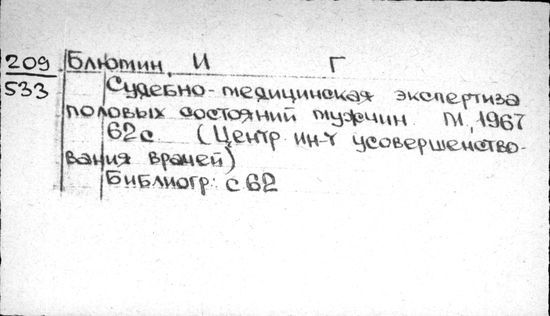 209 Блюмин, И Г
533 Судебно-медицинская экспертиза
половых состояний мужчин. М, 1967
62с (Центр. ин-т усовершенство-
вания врачей)
Библиогр: с 62